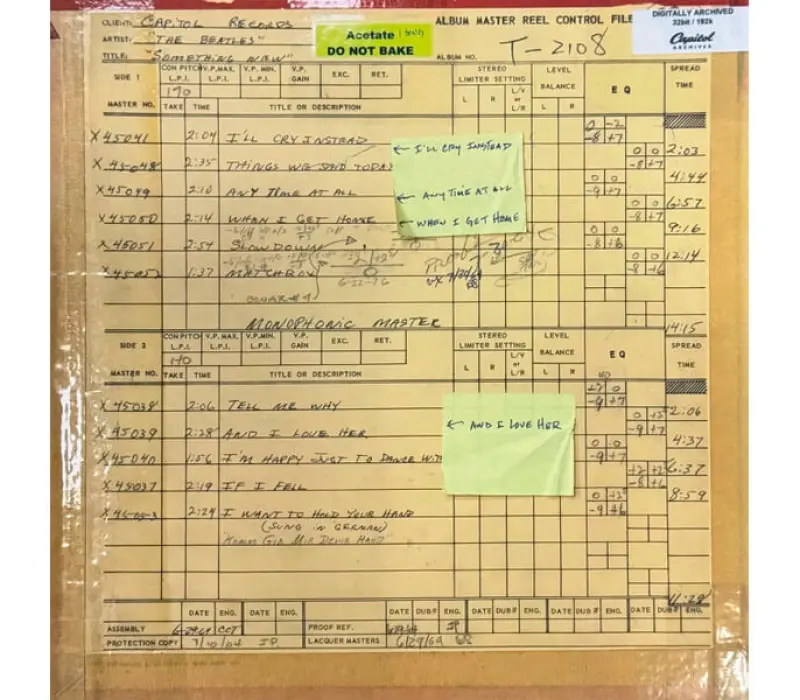 CLIENT: CAPITOL RECORDS
ARTIST: "THE BEATLES"
TITLE: "SOMETHING NEW"
Acetate
DO NOT BAKE
ALBUM MASTER REEL CONTROL FILE
ALBUM NO. T-2108
DIGITALLY ARCHIVED
32bit / 192k
Capitol
ARCHIVES
SIDE 1 CON PITCH L.P.I. V.P.MAX. L.P.I. V.P.MIN. L.P.I. V.P. GAIN EXC. RET. STEREO LIMITER SETTING L R L/V or L/R LEVEL BALANCE L R EQ SPREAD TIME
170
MASTER NO. TAKE TIME TITLE OR DESCRIPTION
0 -2
X 45041 2:04 I'LL CRY INSTEAD -8 +7
← I'LL CRY INSTEAD
0 0 2:03
2:35 THINGS WE SAID TODAY -8 +7
0 0 4:44
X 45049 2:10 ANY TIME AT ALL -9 +7
← ANY TIME AT ALL
0 0 6:57
X 45050 2:14 WHEN I GET HOME -8 +7
← WHEN I GET HOME
0 0 9:16
X 45051 2:54 SLOW DOWN -8 +6
0 0 12:14
X 45052 1:37 MATCHBOX -8 +6
6-22-76
MONOPHONIC MASTER
14:15
SIDE 2 CON PITCH L.P.I. V.P. MAX. L.P.I. V.P.MIN. L.P.I. V.P. GAIN EXC. RET. STEREO LIMITER SETTING L R L/V or L/R LEVEL BALANCE L R EQ SPREAD TIME
MASTER NO. TAKE TIME TITLE OR DESCRIPTION
X 45038 2:06 TELL ME WHY -9 +7
2:06
X 45039 2:28 AND I LOVE HER -9 +7
← AND I LOVE HER
0 0 4:37
X 45040 1:56 I'M HAPPY JUST TO DANCE WITH -9 +7
+2 +2 6:37
X 45037 2:19 IF I FELL -8 +6
0 +2 8:59
2:24 I WANT TO HOLD YOUR HAND -9 +6
(SUNG IN GERMAN)
"KOMM GIB MIR DEINE HAND"
11:28
DATE ENG. DATE ENG. DATE DUB# ENG. DATE DUB# ENG. DATE DUB # ENG. DATE DUB ENG.
ASSEMBLY PROOF REF.
PROTECTION COPY LACQUER MASTERS 6/29/64